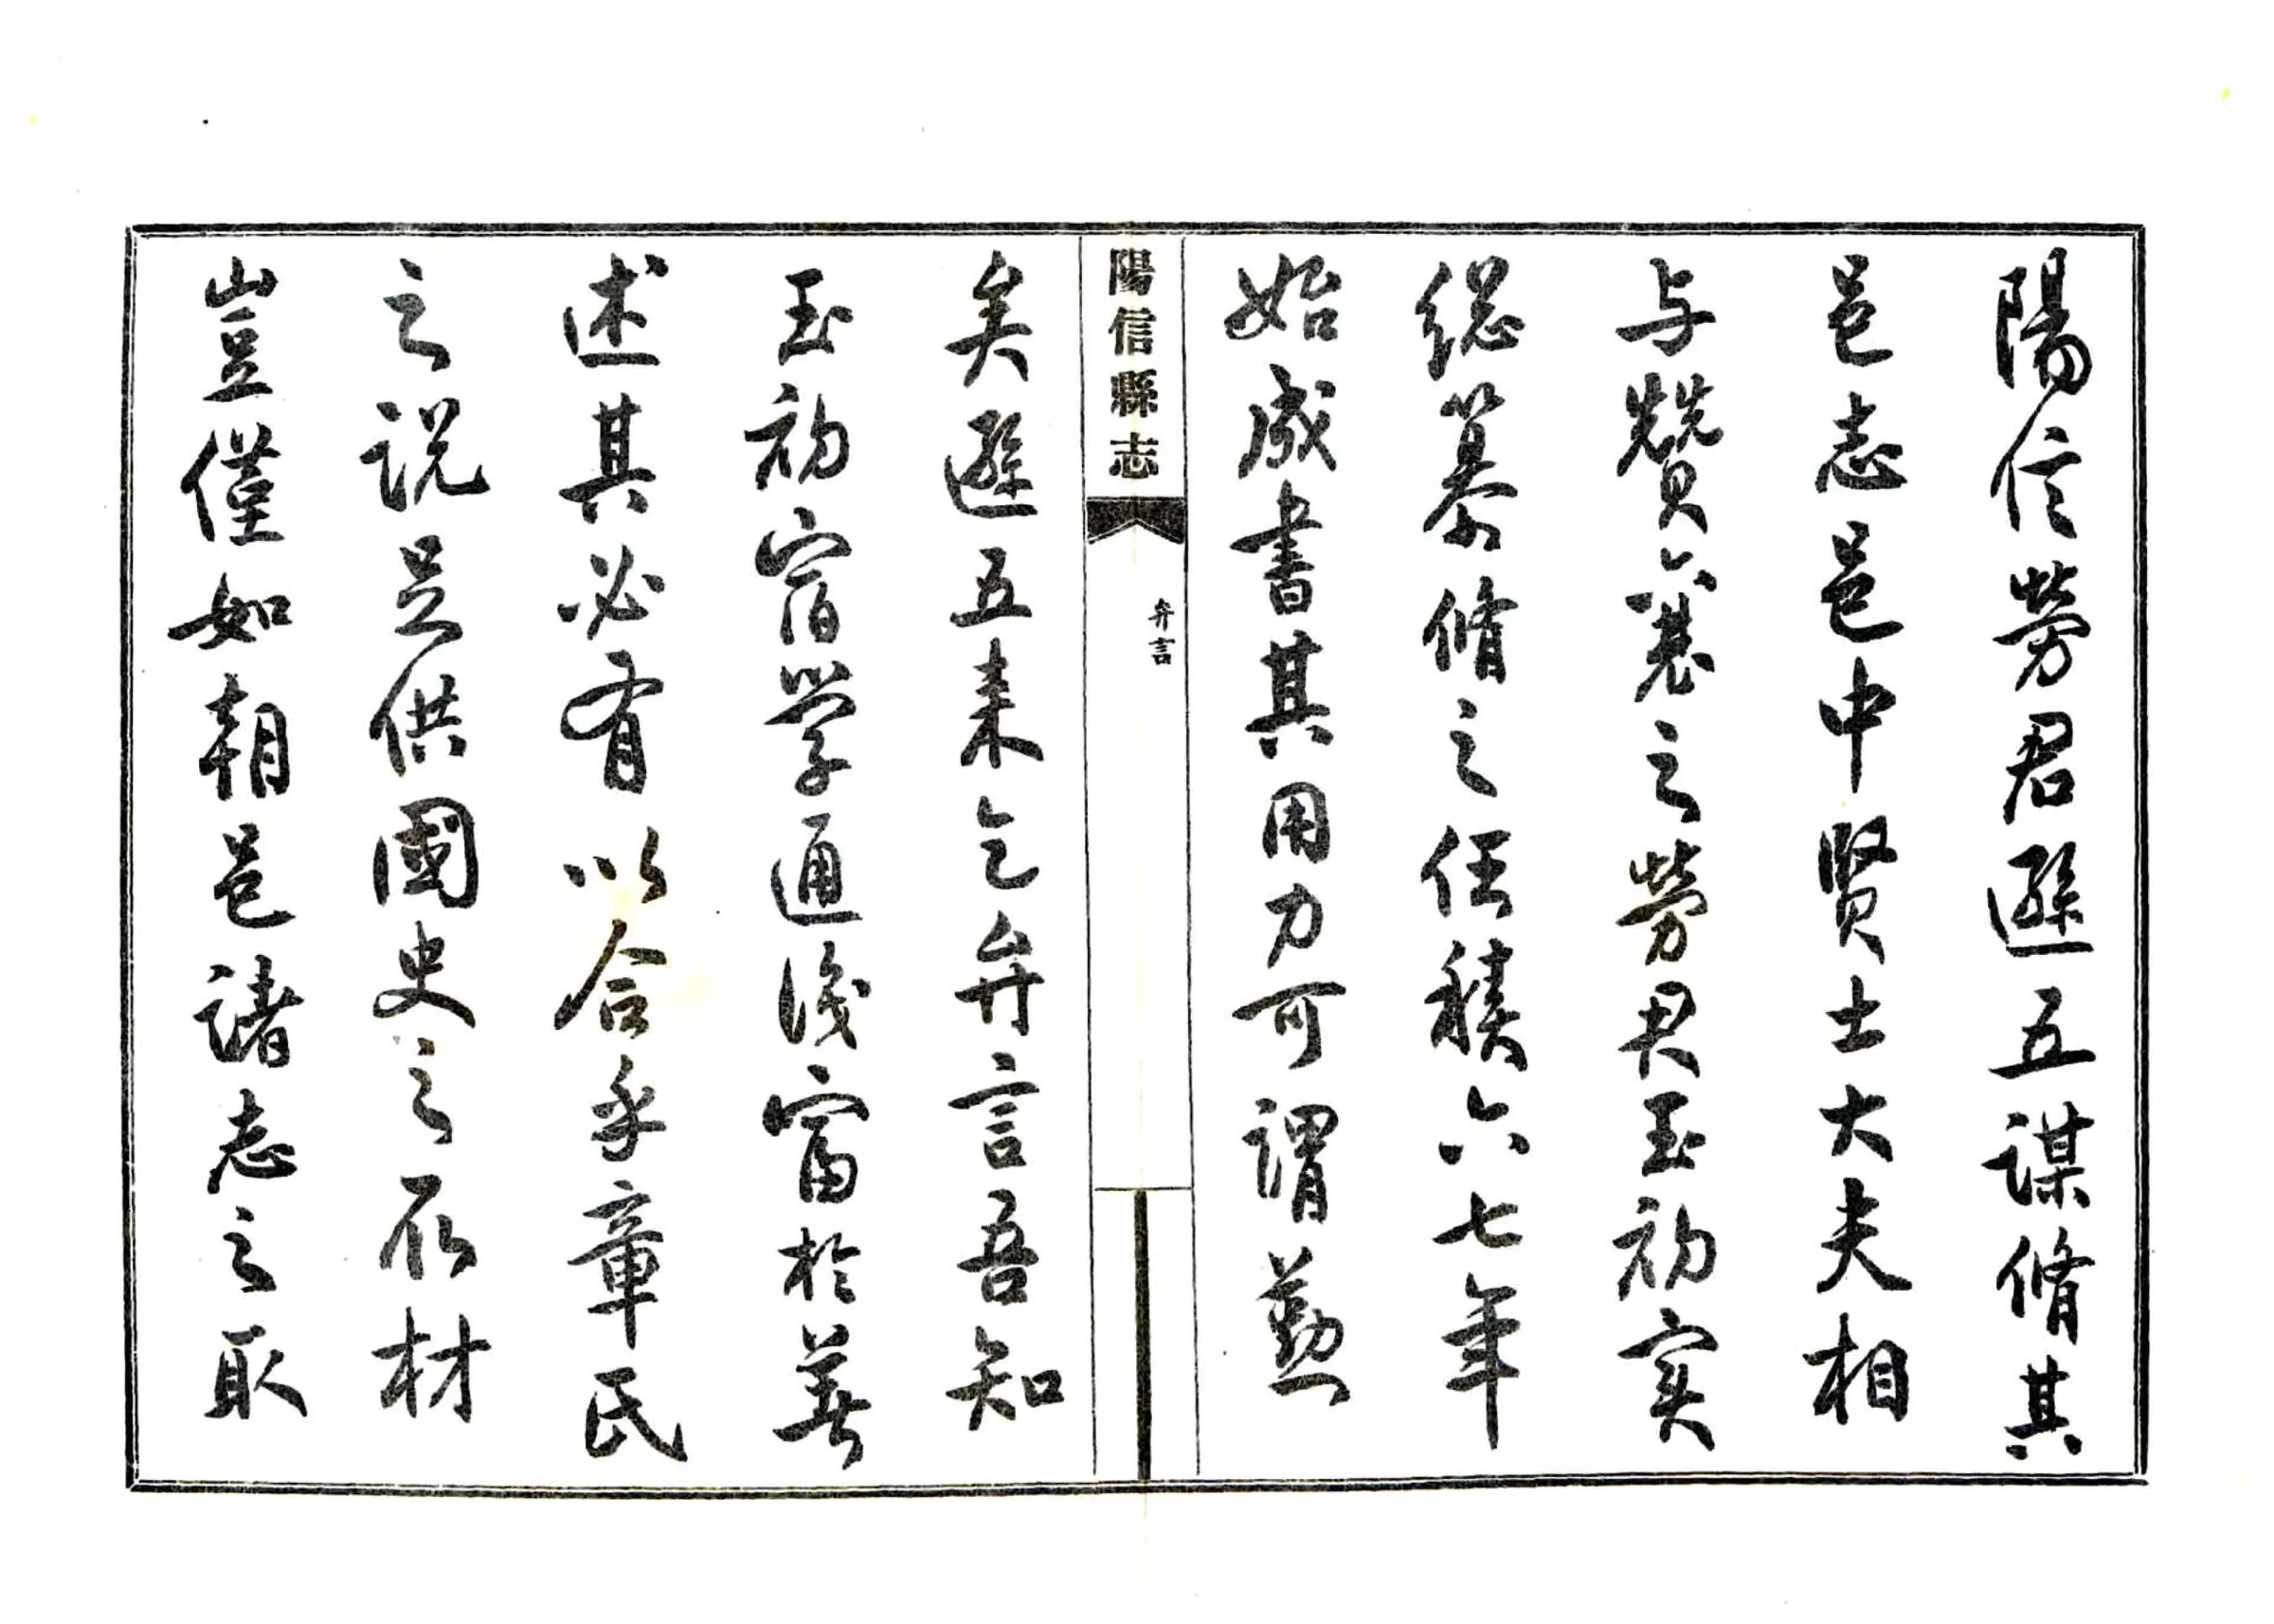 陽信勞君遜五謀脩其
邑志邑中賢士大夫相
与贊襄之勞君玉初实
緫纂脩之任積六七年
始成書其用力可謂勤
陽信縣志
弁言
矣遜五来乞弁言吾知
玉初宿学通識富於著
述其必有以合乎章氏
之説足供國史之所材
豈僅如朝邑諸志之取